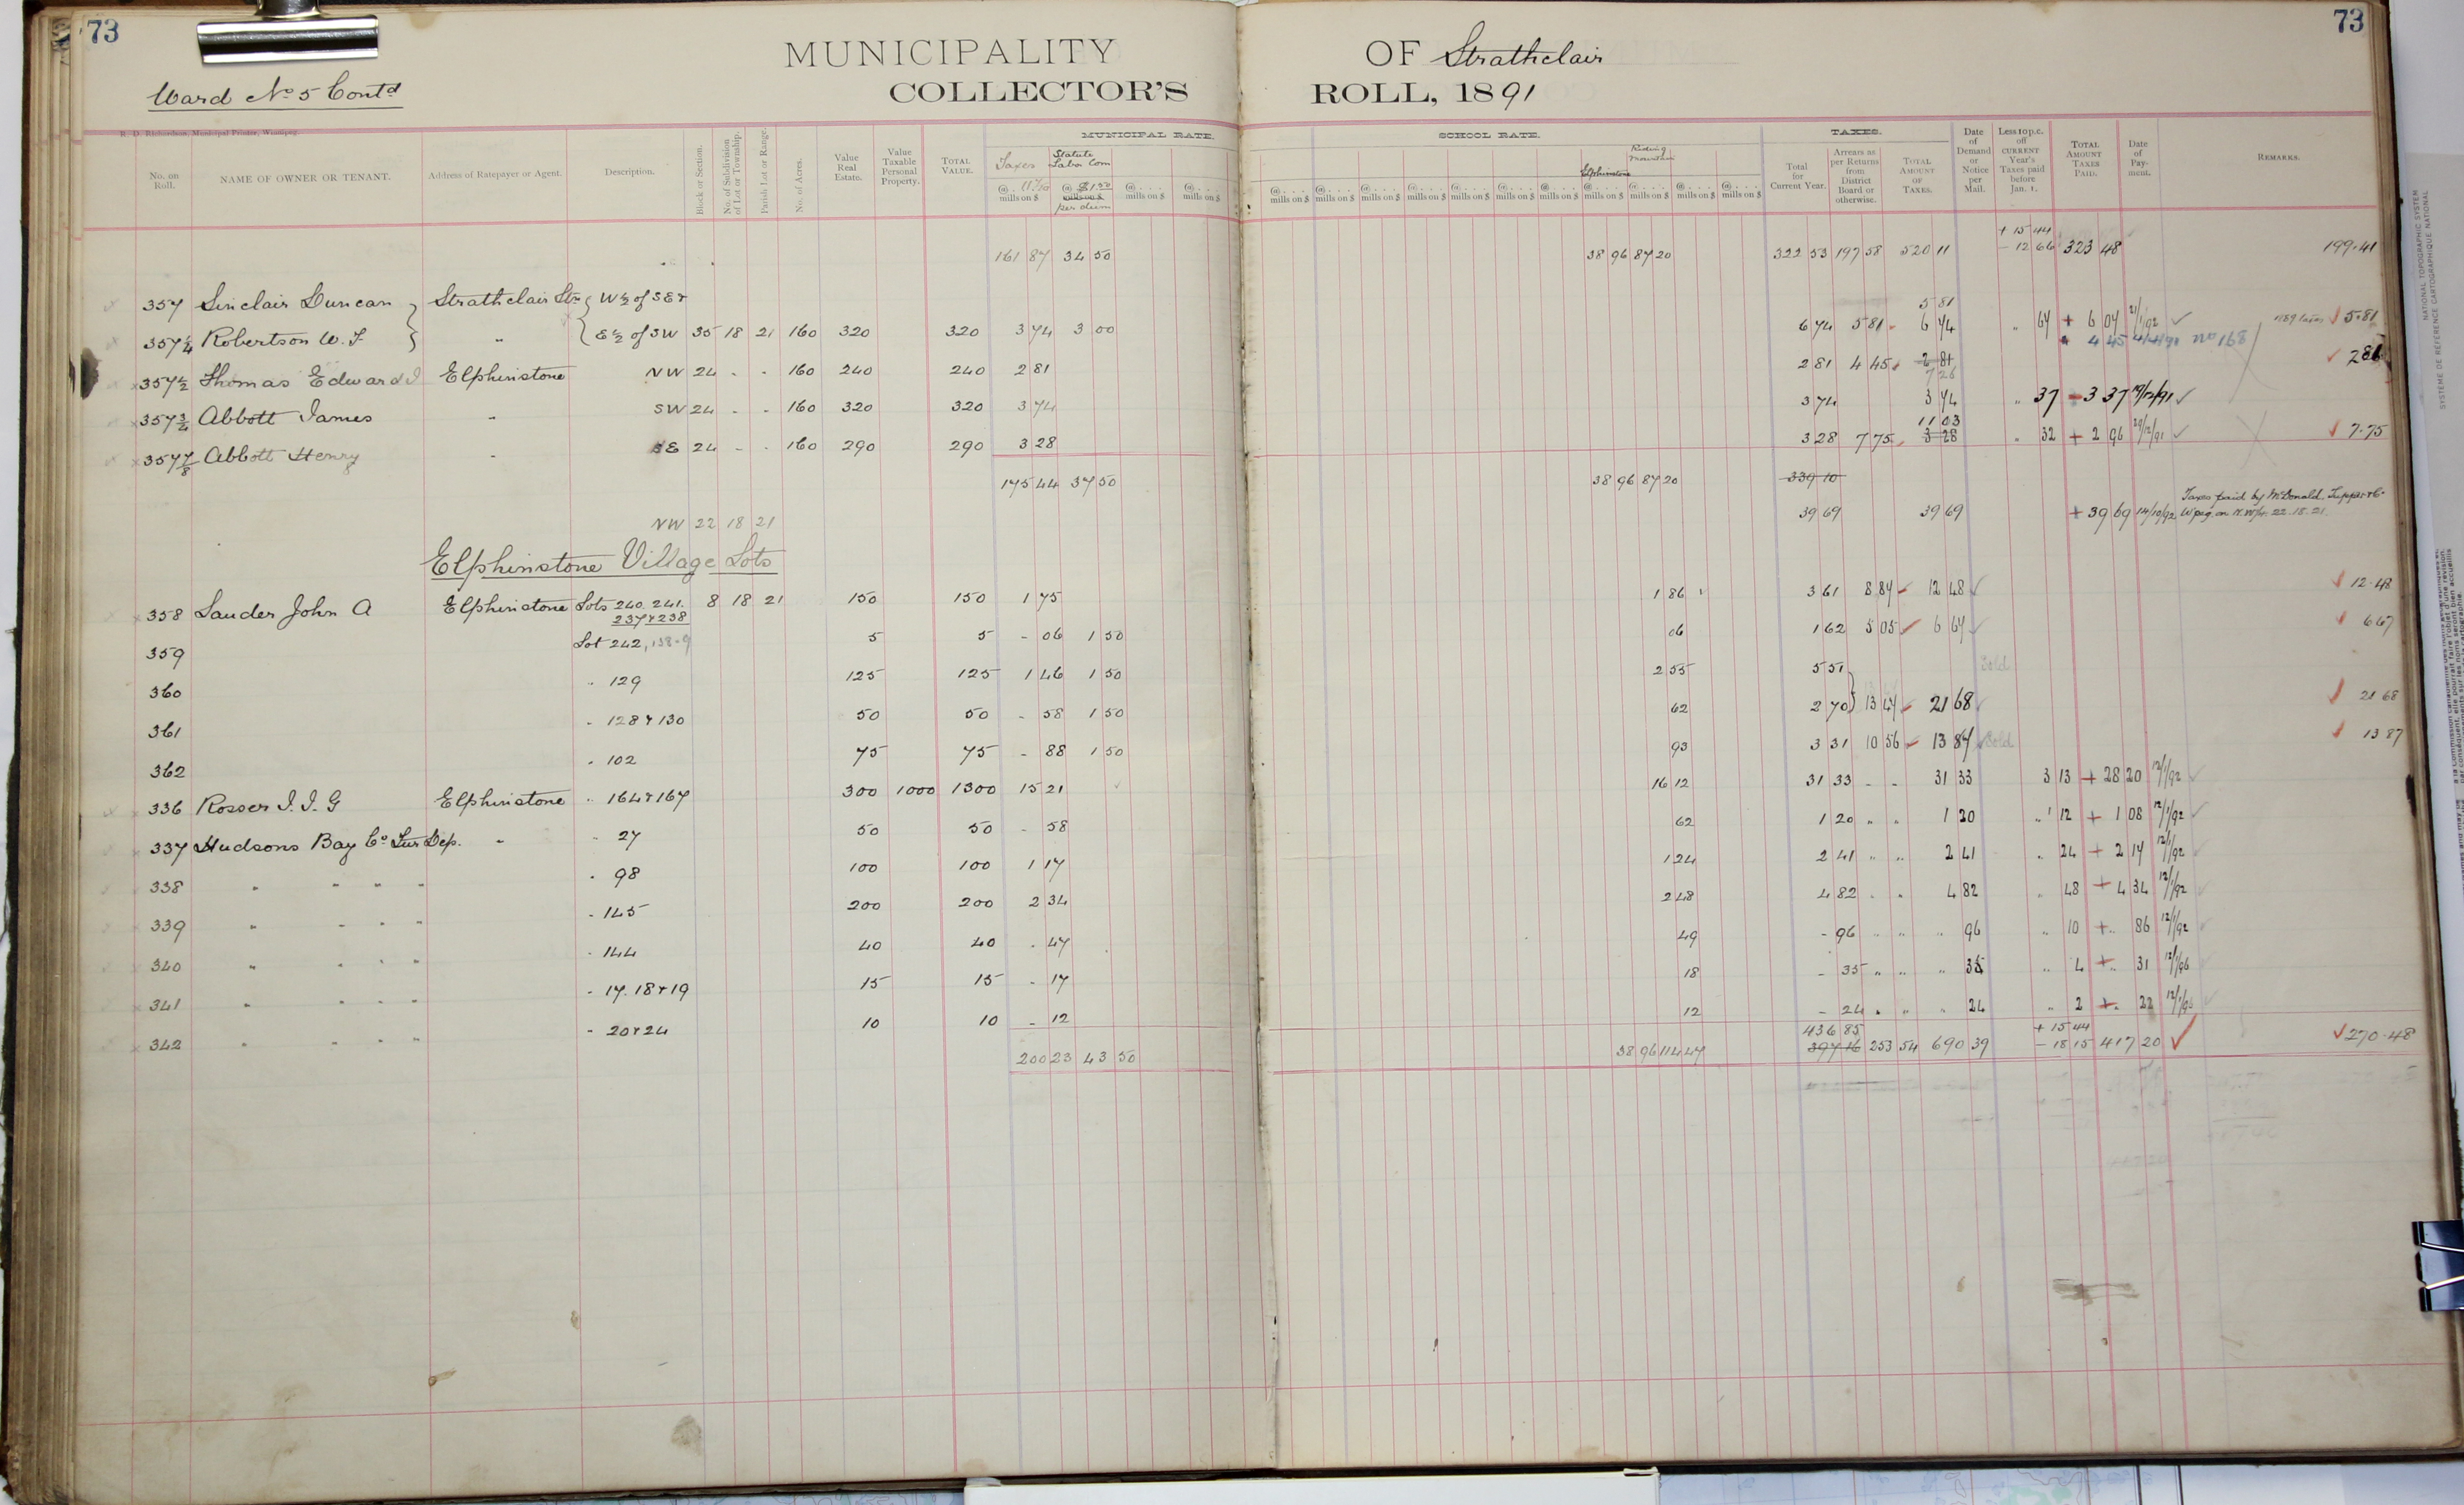 73
73
MUNICIPALITY OF Strathclair
Ward No 5 Contd
COLLECTOR'S ROLL, 1891
R. D. Richardson, Municipal Printer, Winnipeg.
MUNICIPAL RATE. SCHOOL RATE. TAXES.
No. on Roll. NAME OF OWNER OR TENANT. Address of Ratepayer or Agent. Description. Block or Section. No. of Subdivision of Lot or Township. Parish Lot or Range. No. of Acres. Value Real Estate. Value Taxable Personal Property. TOTAL VALUE. Taxes @ mills on $ Statute Labor Com @ $1.50 mills on $ per diem @ mills on $ @ mills on $ Elphinstone Riding Mountain Total for Current Year. Arrears as per Returns from District Board or otherwise. TOTAL AMOUNT OF TAXES. Date of Demand or Notice per Mail. Less 10 p.c. off CURRENT Year's Taxes paid before Jan. 1. TOTAL AMOUNT TAXES PAID. Date of Payment. REMARKS.
161 87 34 50 38 96 87 20 322 53 197 58 520 11 + 15 44 - 12 66 323 48 199.41
357 Sinclair Duncan Strathclair Stn W½ of SE & 5 81
357¼ Robertson W. F " E½ of SW 35 18 21 160 320 320 3 74 3 00 6 74 5 81 6 74 " 67 + 6 07 21/1/92 1889 taxes 5.81
4 45 no 168
357½ Thomas Edward J Elphinstone NW 24 - - 160 240 240 2 81 2 81 4 45 2 81 7 26 2 81
357¾ Abbott James " SW 24 - - 160 320 320 3 74 3 74 3 74 " 37 - 3 37 19/12/91
357⅞ Abbott Henry " SE 24 - - 160 290 290 3 28 3 28 7 75 11 03 3 28 " 32 + 2 96 29/12/91 7.75
175 44 37 50 38 96 87 20 339 10
NW 22 18 21 39 69 39 69 + 39 69 14/10/92 Taxes paid by McDonald Tupper & Co Wpeg on N.W¼. 22.18.21.
Elphinstone Village Lots
358 Lauder John A Elphinstone Lots 240. 241. 237 & 238 8 18 21 150 150 1 75 1 86 3 61 8 87 12 48 12.48
359 Lot 242, 138-9 5 5 - 06 1 50 06 1 62 5 05 6 67 6 67
360 " 129 125 125 1 46 1 50 2 55 5 51 Sold
361 " 128 & 130 50 50 - 58 1 50 62 2 70 13 47 21 68 21 68
362 " 102 75 75 - 88 1 50 93 3 31 10 56 13 87 Sold 13 87
336 Rosser J. J. G Elphinstone " 164 & 167 300 1000 1300 15 21 16 12 31 33 - - 31 33 3 13 + 28 20 12/1/92
337 Hudsons Bay Co Fur Dep. " " 27 50 50 - 58 62 1 20 " " 1 20 " 12 + 1 08 12/1/92
338 " " " " " 98 100 100 1 17 1 24 2 41 " " 2 41 " 24 + 2 17 12/1/92
339 " " " " " 145 200 200 2 34 2 48 4 82 " " 4 82 " 48 + 4 34 12/1/92
340 " " " " " 144 40 40 - 47 49 - 96 " " " 96 " 10 + " 86 12/1/92
341 " " " " " 17. 18 & 19 15 15 - 17 18 - 35 " " " 35 " 4 + " 31
342 " " " " " 20 & 24 10 10 - 12 12 - 24 " " " 24 " 2 + " 22
200 23 43 50 38 96 114 47 436 85 397 16 253 54 690 39 + 15 44 - 18 15 417 20 270.48
NATIONAL TOPOGRAPHIC SYSTEM
SYSTÈME DE RÉFÉRENCE CARTOGRAPHIQUE NATIONAL